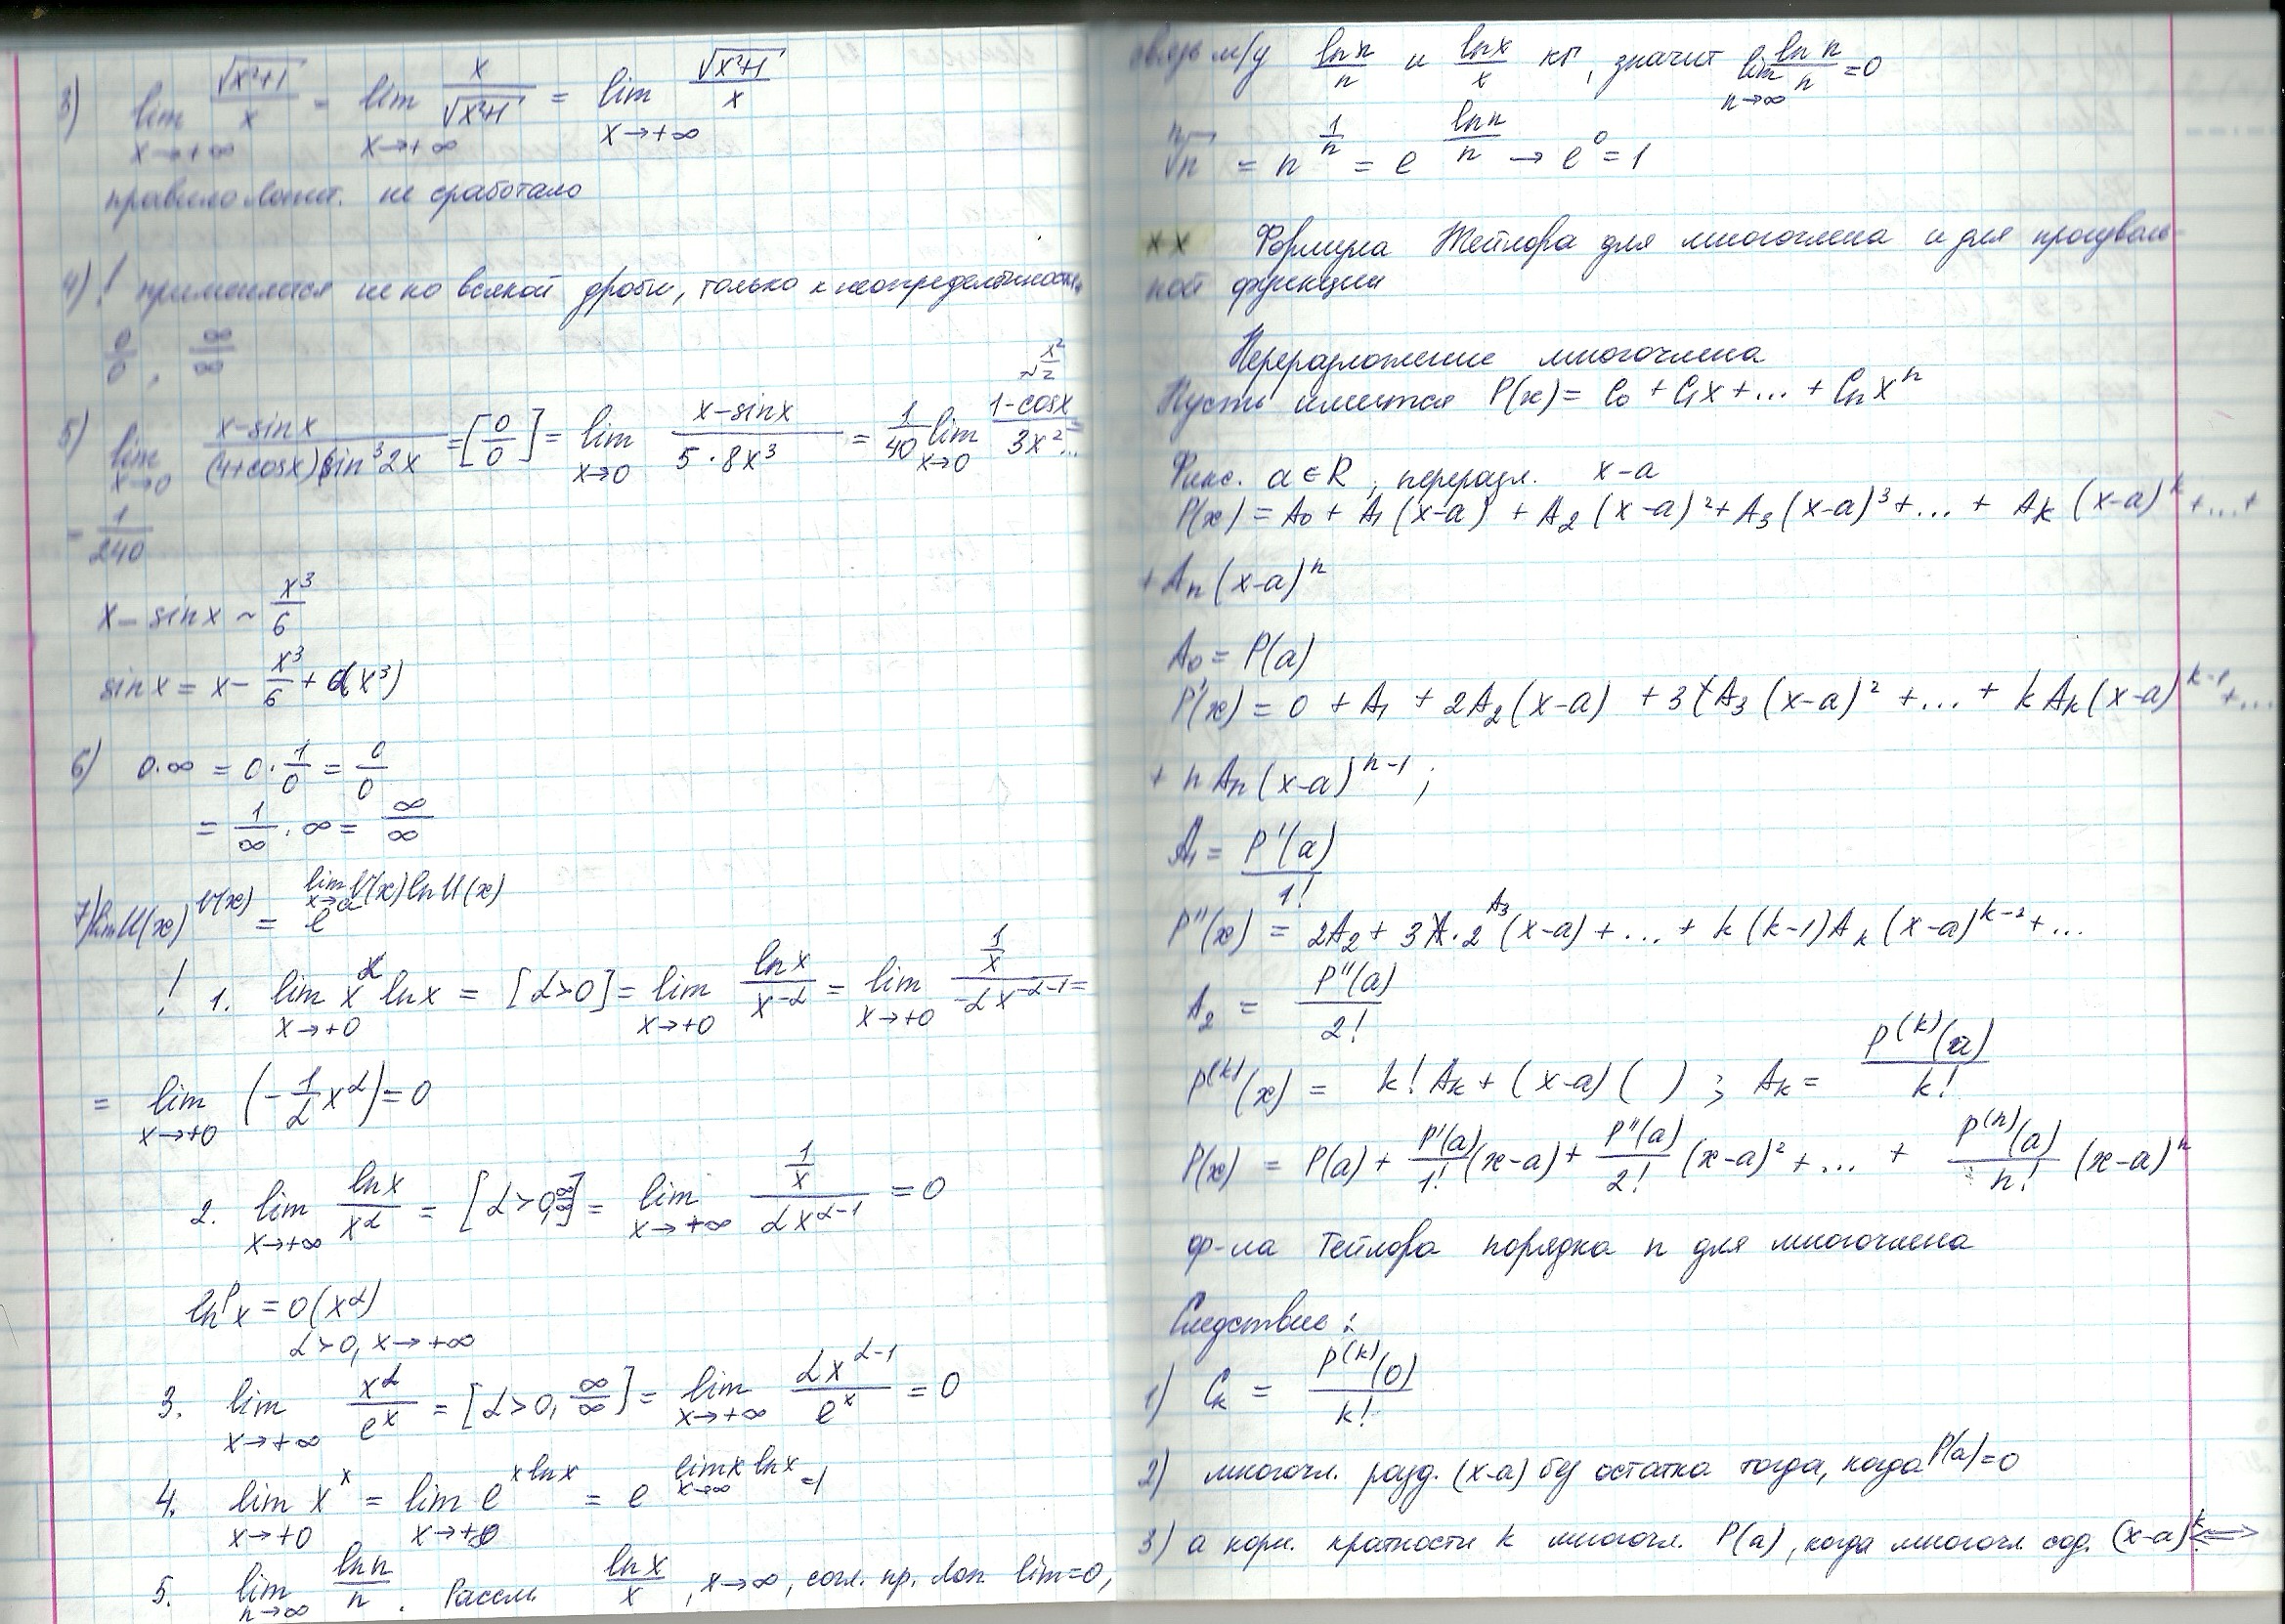 3) lim_{x→+∞} √(x²+1)/x = lim_{x→+∞} x/√(x²+1) = lim_{x→+∞} √(x²+1)/x
правило Лопит. не сработало
4) ! применяется не ко всякой дроби, только к неопределённостям
0/0, ∞/∞
5) lim_{x→0} (x-sinx)/((4+cosx)sin³2x) = [0/0] = lim_{x→0} (x-sinx)/(5·8x³) = 1/40 lim_{x→0} (1-cosx ~ x²/2)/(3x²) = ...
= 1/240
x - sinx ~ x³/6
sinx = x - x³/6 + o(x³)
6) 0·∞ = 0·1/0 = 0/0
= 1/∞ · ∞ = ∞/∞
7) lim U(x)^{V(x)} = e^{lim_{x→a} V(x) ln U(x)}
! 1. lim_{x→+0} x^α lnx = [α>0] = lim_{x→+0} lnx/x^{-α} = lim_{x→+0} (1/x)/(-αx^{-α-1}) =
= lim_{x→+0} (-1/α x^α) = 0
2. lim_{x→+∞} lnx/x^α = [α>0, ∞/∞] = lim_{x→+∞} (1/x)/(αx^{α-1}) = 0
ln^p x = o(x^α)
α>0, x→+∞
3. lim_{x→+∞} x^α/e^x = [α>0, ∞/∞] = lim_{x→+∞} αx^{α-1}/e^x = 0
4. lim_{x→+0} x^x = lim_{x→+0} e^{x lnx} = e^{lim_{x→∞} x lnx} = 1
5. lim_{n→∞} ln n/n . Рассм. lnx/x, x→∞, согл. пр. Лоп. lim=0,
связь м/у ln n/n и lnx/x , значит lim_{n→∞} ln n/n = 0
ⁿ√n = n^{1/n} = e^{ln n/n} → e⁰ = 1
×× Формула Тейлора для многочлена и для произволь-
ной функции
Переразложение многочлена
Пусть имеется P(x) = C₀ + C₁x + ... + Cₙxⁿ
Фикс. a∈R, переразл. x-a
P(x) = A₀ + A₁(x-a) + A₂(x-a)² + A₃(x-a)³ + ... + A_k(x-a)^k + ... +
+ Aₙ(x-a)ⁿ
A₀ = P(a)
P'(x) = 0 + A₁ + 2A₂(x-a) + 3A₃(x-a)² + ... + kA_k(x-a)^{k-1} + ...
+ nAₙ(x-a)^{n-1};
A₁ = P'(a)/1!
P''(x) = 2A₂ + 3·2A₃(x-a) + ... + k(k-1)A_k(x-a)^{k-2} + ...
A₂ = P''(a)/2!
P^{(k)}(x) = k!A_k + (x-a)( ) ; A_k = P^{(k)}(a)/k!
P(x) = P(a) + P'(a)/1! (x-a) + P''(a)/2! (x-a)² + ... + P^{(n)}(a)/n! (x-a)ⁿ
ф-ла Тейлора порядка n для многочлена
Следствие:
1) C_k = P^{(k)}(0)/k!
2) многочл. разд. (x-a) без остатка тогда, когда P(a)=0
3) a корн. кратности k многочл. P(a), когда многочл сод. (x-a)^k ⟺